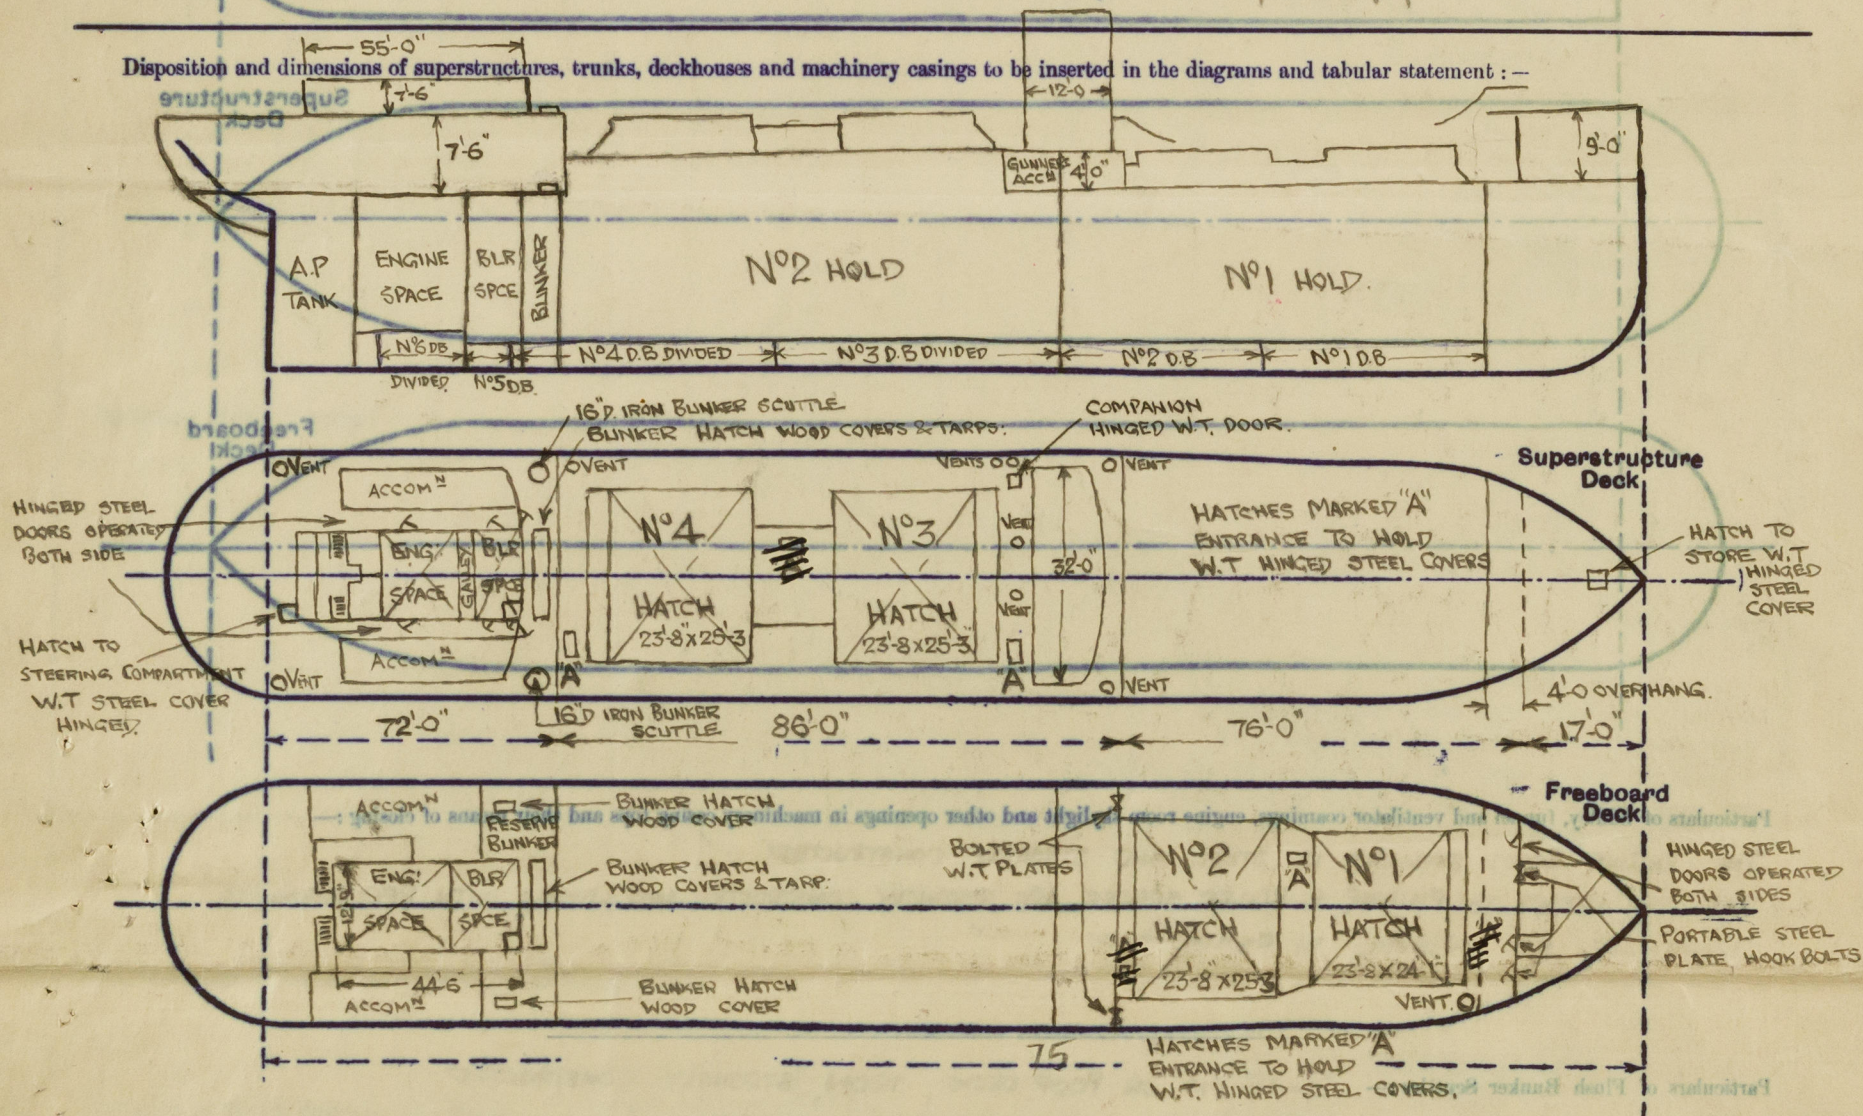 55'-0"
Disposition and dimensions of superstructures, trunks, deckhouses and machinery casings to be inserted in the diagrams and tabular statement :—
Superstructure
Deck
7'-6"
12'-0
7'-6"
9'-0"
GUNNERS
ACCN
4'0"
A.P
TANK
ENGINE
SPACE
BLR
SPCE
BUNKER
Nº2 HOLD
Nº1 HOLD.
Nº6 DB
DIVIDED.
Nº5 D.B.
Nº4 D.B DIVIDED
Nº3 D.B DIVIDED
Nº2 D.B
Nº1 D.B
16"D. IRON BUNKER SCUTTLE
BUNKER HATCH WOOD COVERS & TARPS:
COMPANION
HINGED W.T. DOOR.
Freeboard
Deck
VENT
VENT
VENTS
VENT
Superstructure
Deck
ACCOMN
HINGED STEEL
DOORS OPERATED
BOTH SIDE
ENG.
SPACE
GALLEY
BLR
SPCE
Nº4
HATCH
23'-8"x25'-3
Nº3
HATCH
23'-8x25'-3"
VENT
VENT
32'-0"
HATCHES MARKED "A"
ENTRANCE TO HOLD
W.T HINGED STEEL COVERS
HATCH TO
STORE W.T
HINGED
STEEL
COVER
HATCH TO
STEERING COMPARTMENT
W.T STEEL COVER
HINGED.
ACCOMN
VENT
"A"
"A"
VENT
4'-0 OVERHANG.
16"D IRON BUNKER
SCUTTLE
72'-0"
86'-0"
76'-0"
17'-0"
Freeboard
Deck
ACCOMN
RESERVE
BUNKER
BUNKER HATCH
WOOD COVER
Particulars of
and ventilator coamings, engine room skylight and other openings in
and
means of closing :—
BUNKER HATCH
WOOD COVERS & TARP:
ENG:
SPACE
BLR
SPCE
12'-9"
44'-6
ACCOMN
BUNKER HATCH
WOOD COVER
BOLTED
W.T. PLATES
Nº2
HATCH
23'-8"x25-3
"A"
Nº1
HATCH
VENT.
HINGED STEEL
DOORS OPERATED
BOTH SIDES
PORTABLE STEEL
PLATE HOOK BOLTS
75
HATCHES MARKED "A"
ENTRANCE TO HOLD
W.T. HINGED STEEL COVERS.
Particulars of Flush Bunker